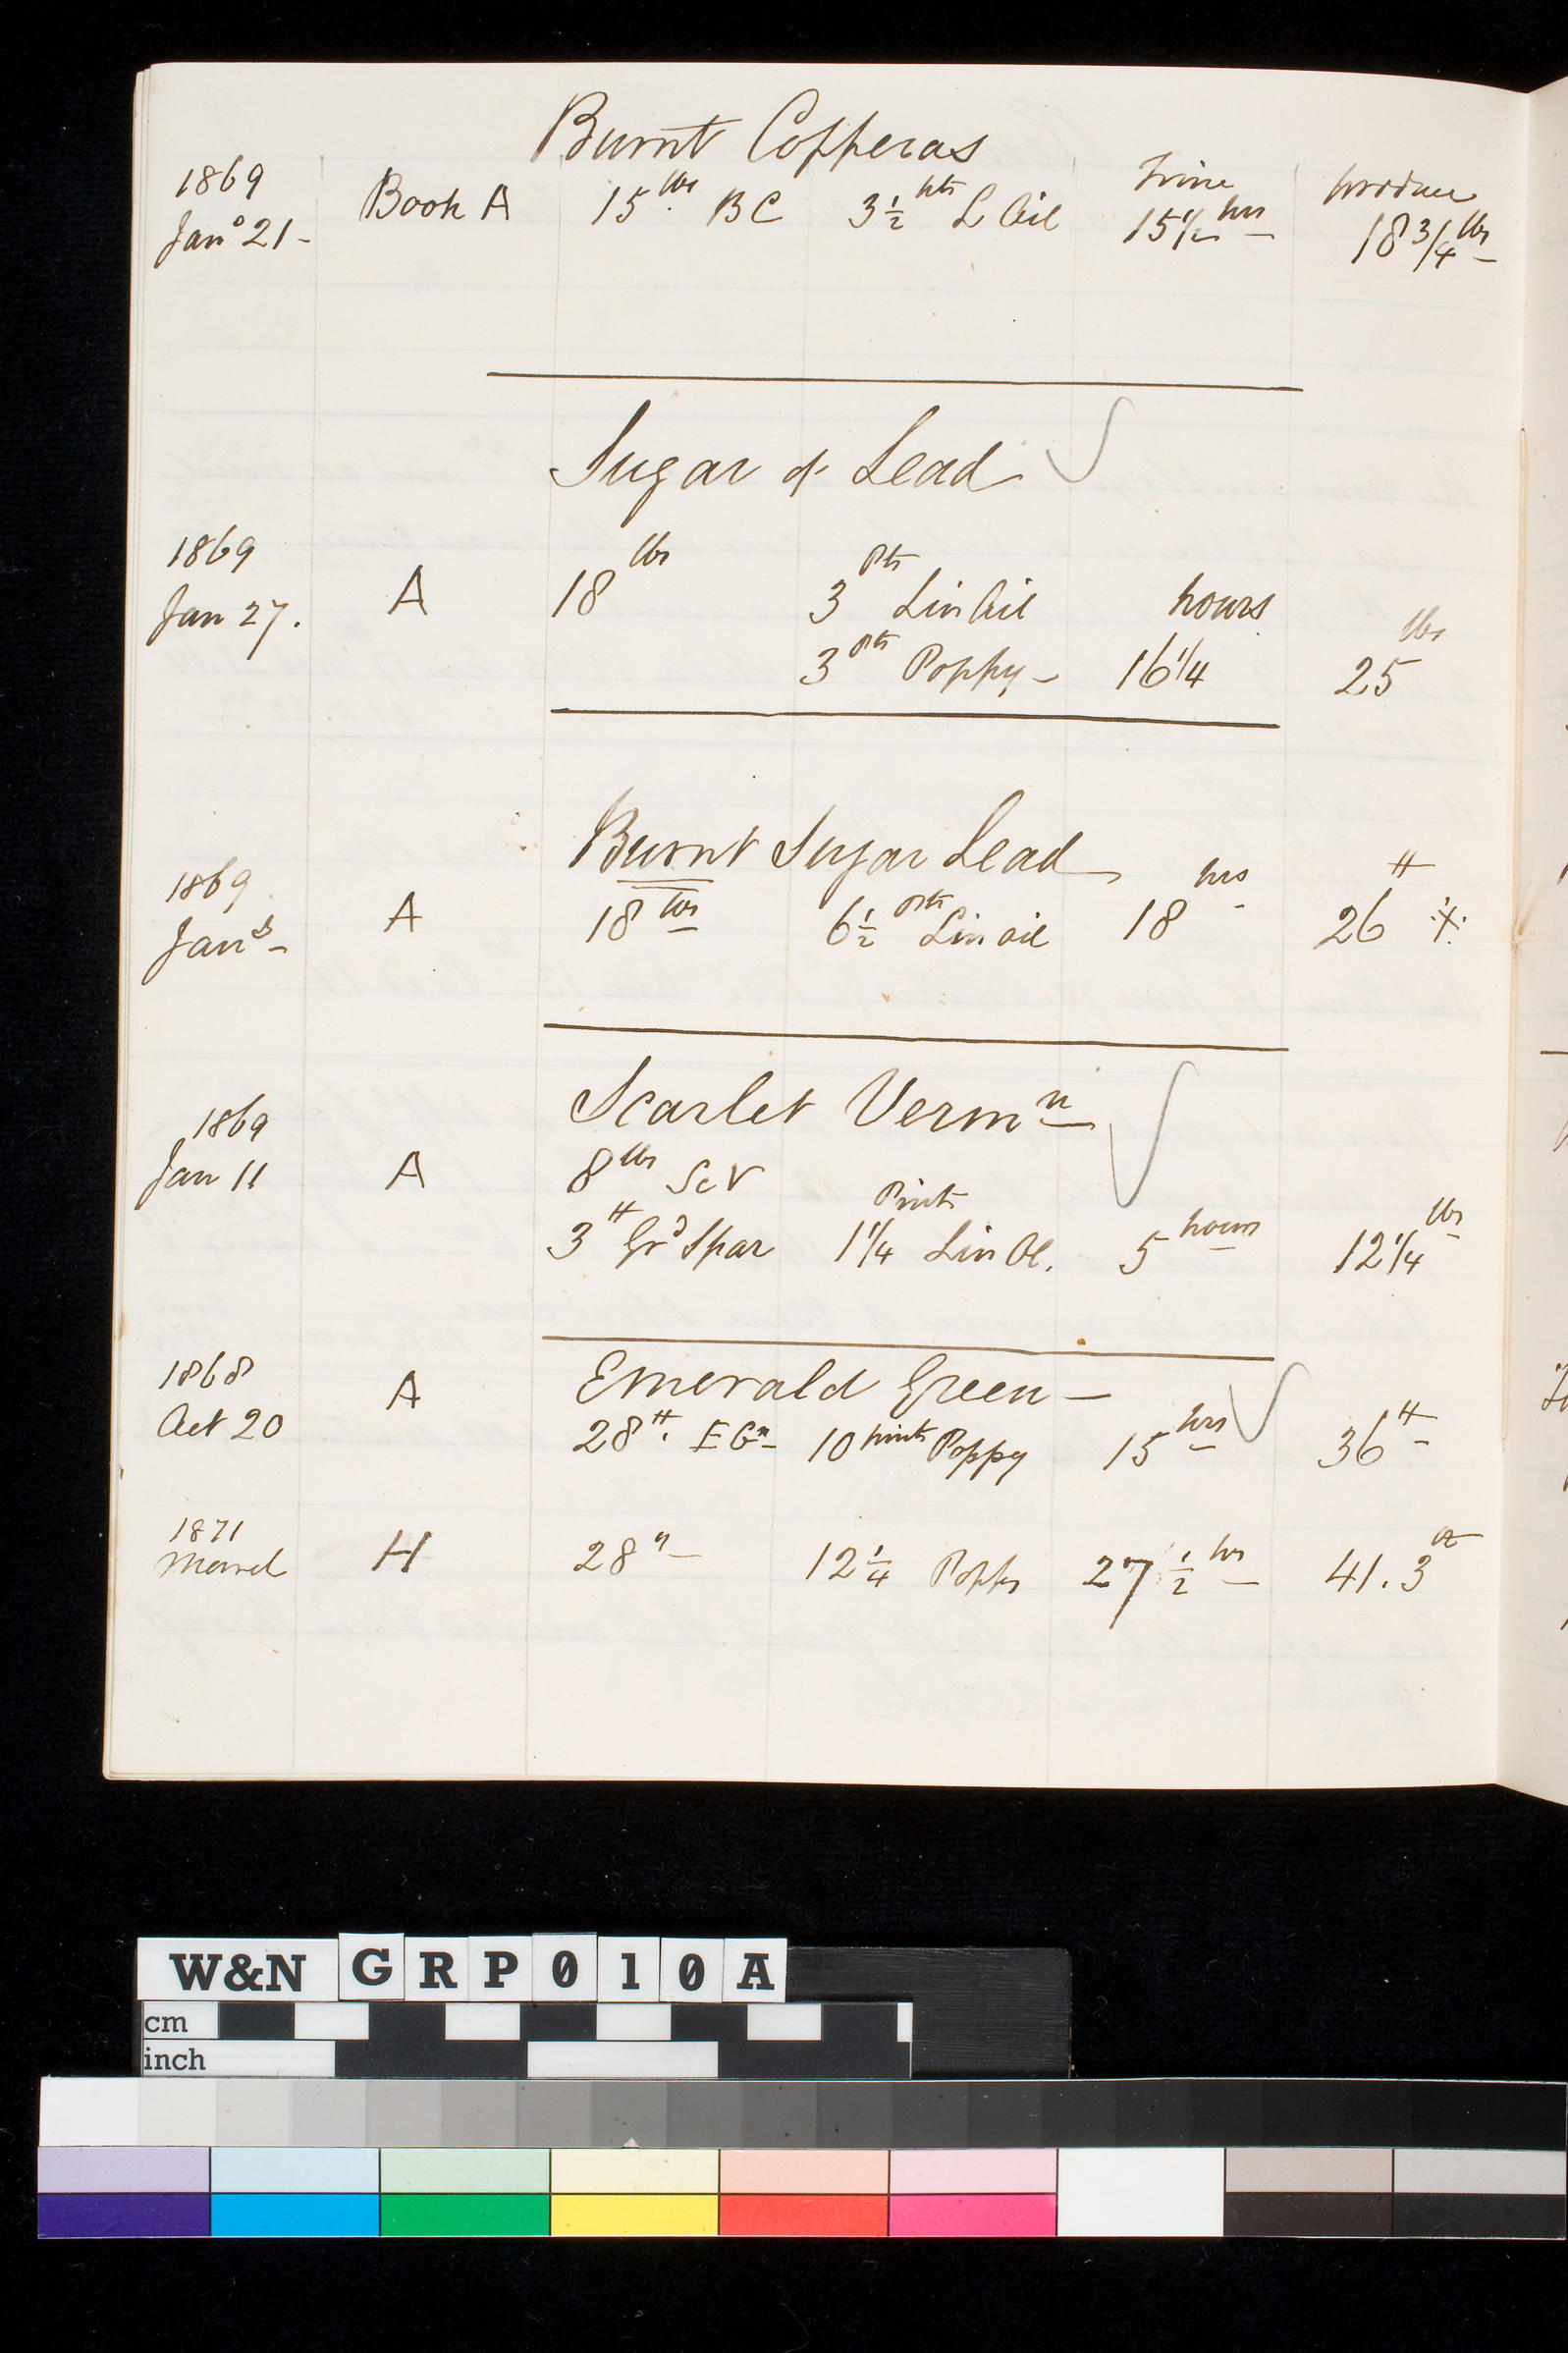 Burnt Copperas
1869 Time produce
Jan° 21 - Book A 15 lbs. B C 3 1/2 pts L Oil 15 1/2 hrs 18 3/4 lbs
Sugar of Lead
1869
Jan 27. A 18 lbs 3 Pts Lin Oil hours
3 Pts Poppy - 16 1/4 25 lbs
Burnt Sugar Lead
1869
Jan - A 18 lbs 6 1/2 pts Lin oil 18 hrs 26 #
Scarlet Verm n
1869
Jan 11 A 8 lbs Sc V
3 # Grd Spar 1 1/4 Pints Lin Ol. 5 hours 12 1/4 lbs
1868 A Emerald Green -
Oct 20 28 #. E Gn 10 pints Poppy 15 hrs 36 #
1871
March H 28 " 12 1/4 Poppy 27 1/2 hrs 41.3
W&N GRP010A
cm
inch